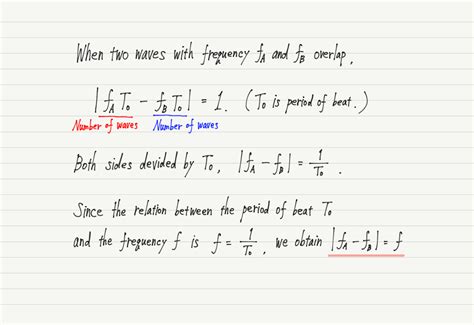 When two waves with frequency f_A and f_B overlap,
|f_A T_0 - f_B T_0| = 1. (T_0 is period of beat.)
Number of waves Number of waves
Both sides devided by T_0, |f_A - f_B| = 1/T_0 .
Since the relation between the period of beat T_0
and the frequency f is f = 1/T_0, we obtain |f_A - f_B| = f